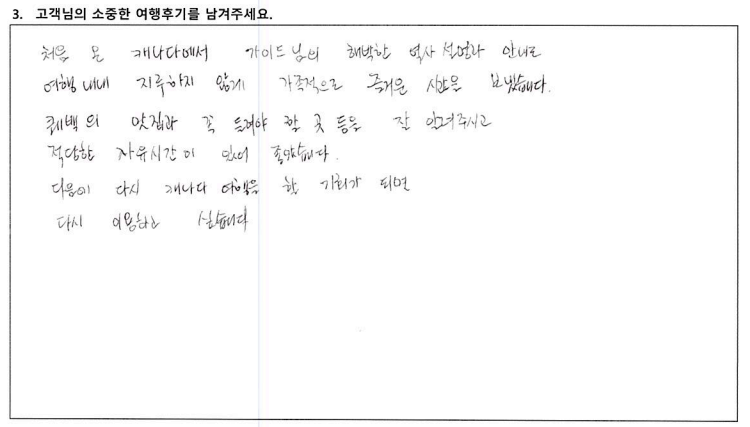 3. 고객님의 소중한 여행후기를 남겨주세요.
처음 온 캐나다에서 가이드님의 해박한 역사 설명과 안내로
여행 내내 지루하지 않게 가족적으로 즐거운 시간을 보냈습니다.
퀘백의 맛집과 꼭 들려야 할 곳 등을 잘 알려주시고
적당한 자유시간이 있어 좋았습니다.
다음에 다시 캐나다 여행을 할 기회가 되면
다시 이용하고 싶습니다